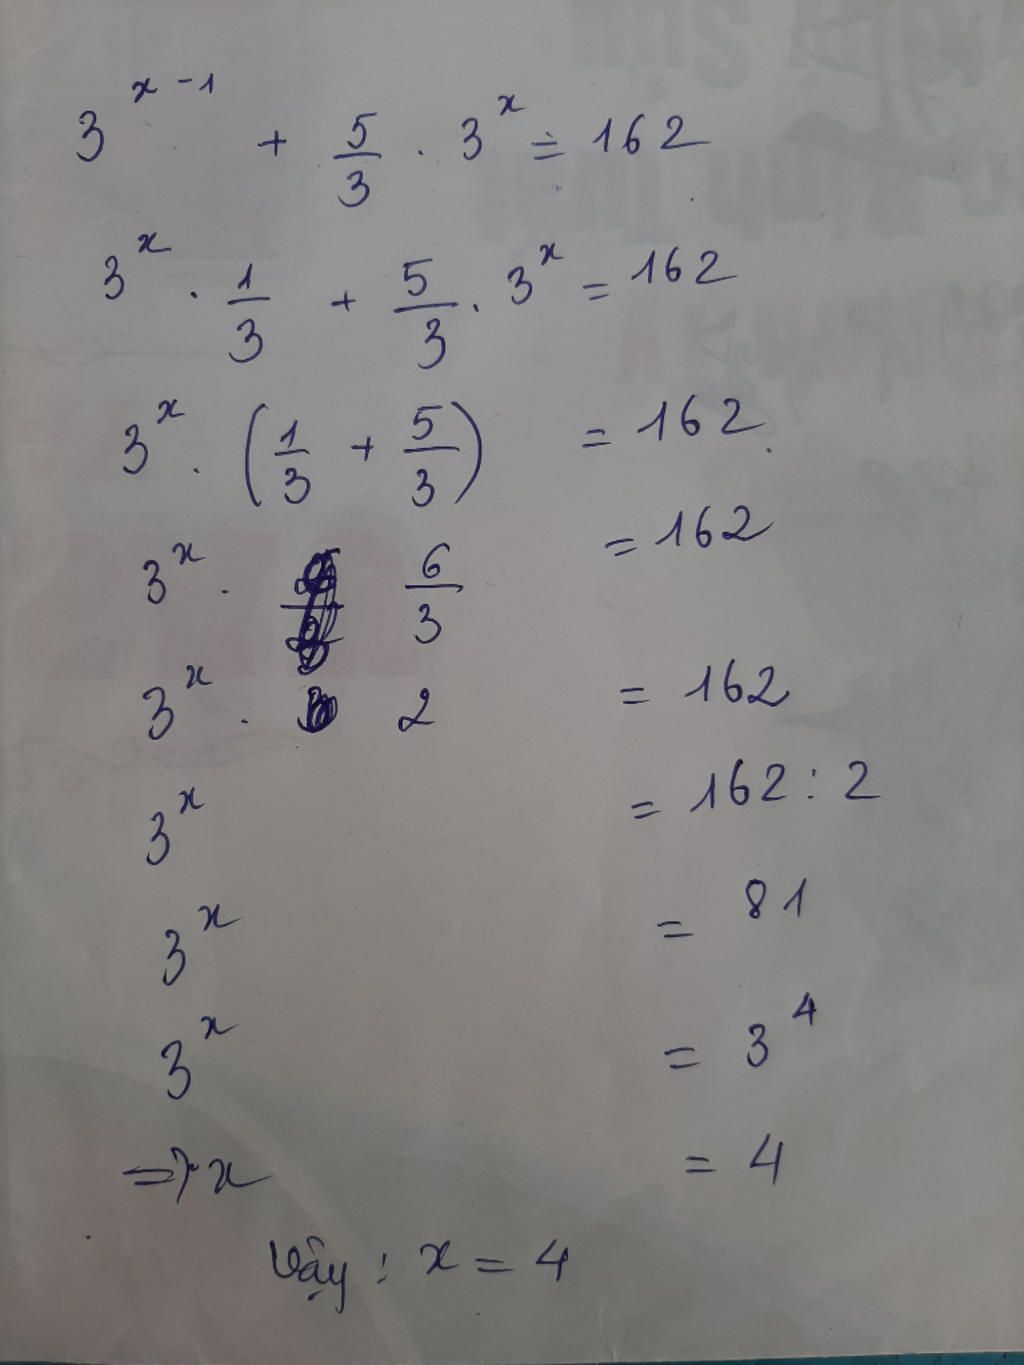 3^{x-1} + \frac{5}{3} . 3^x = 162
3^x . \frac{1}{3} + \frac{5}{3} . 3^x = 162
3^x . (\frac{1}{3} + \frac{5}{3}) = 162
3^x . \frac{6}{3} = 162
3^x . 2 = 162
3^x = 162 : 2
3^x = 81
3^x = 3^4
=> x = 4
Vậy : x = 4